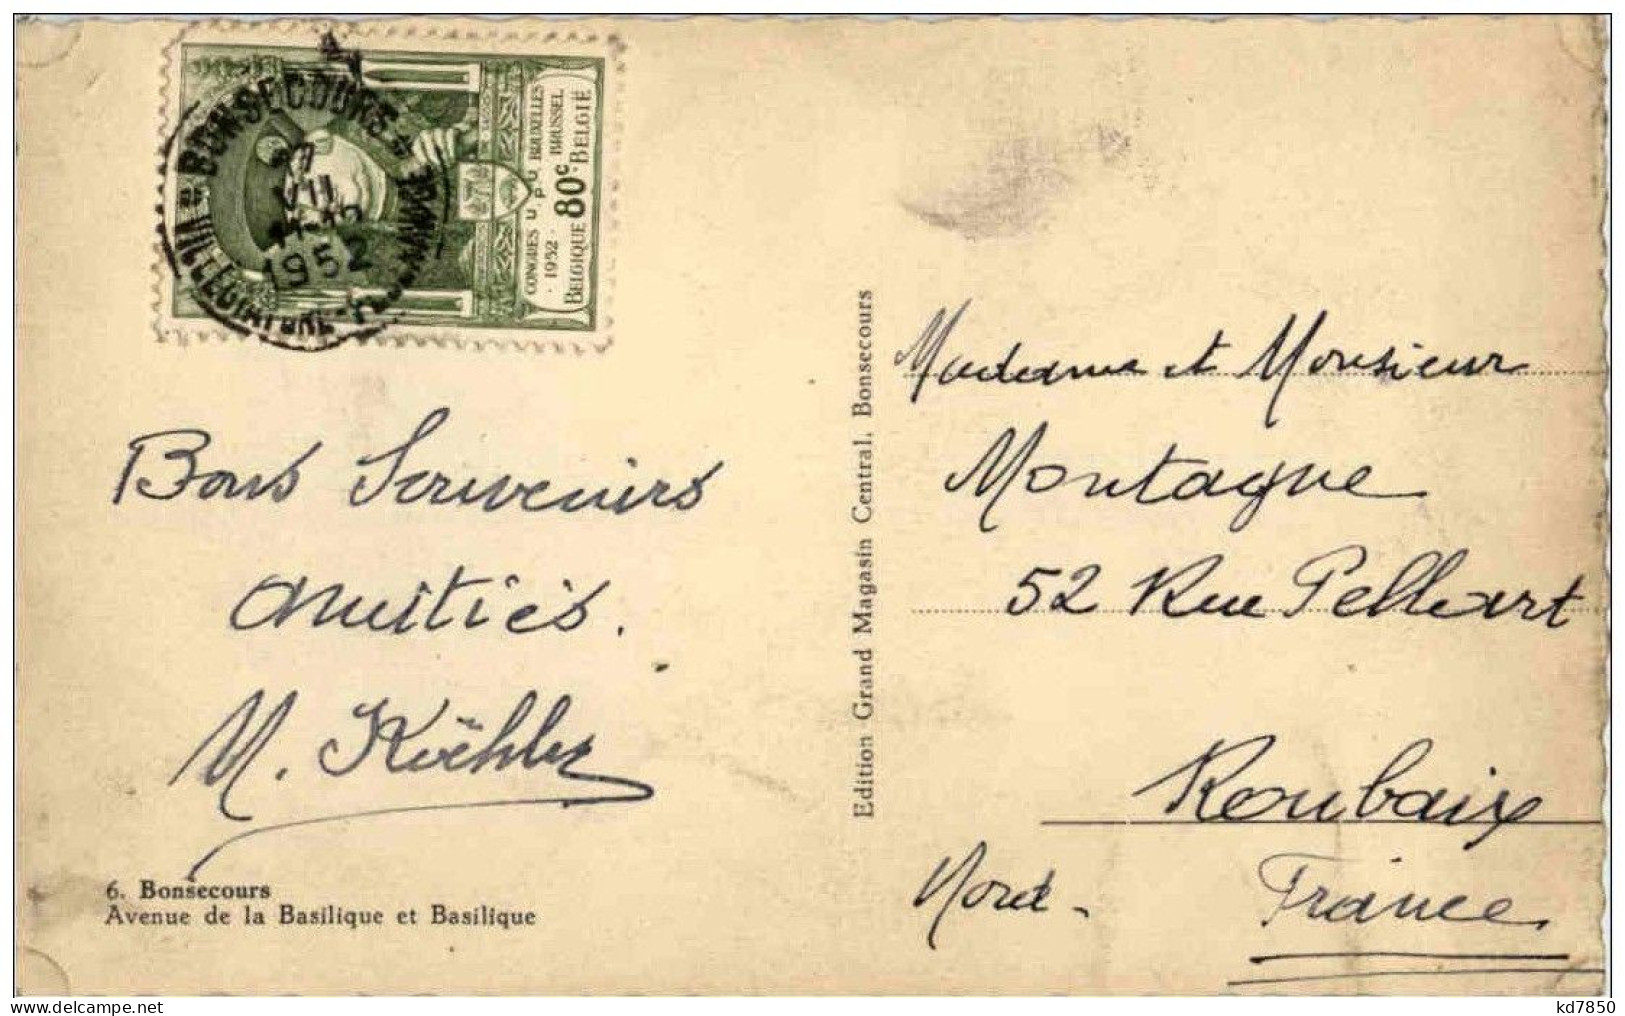 BONSECOURS
VII
1952
CONGRES U.P.U. BRUXELLES
· 1952 · BRUSSEL
BELGIQUE 80c BELGIË
Bons Souvenirs
amitiés.
M. Köhler
6. Bonsecours
Avenue de la Basilique et Basilique
Edition Grand Magasin Central, Bonsecours
Madame et Monsieur
Montagne
52 Rue Pellart
Roubaix
Nord -
France
kd7850